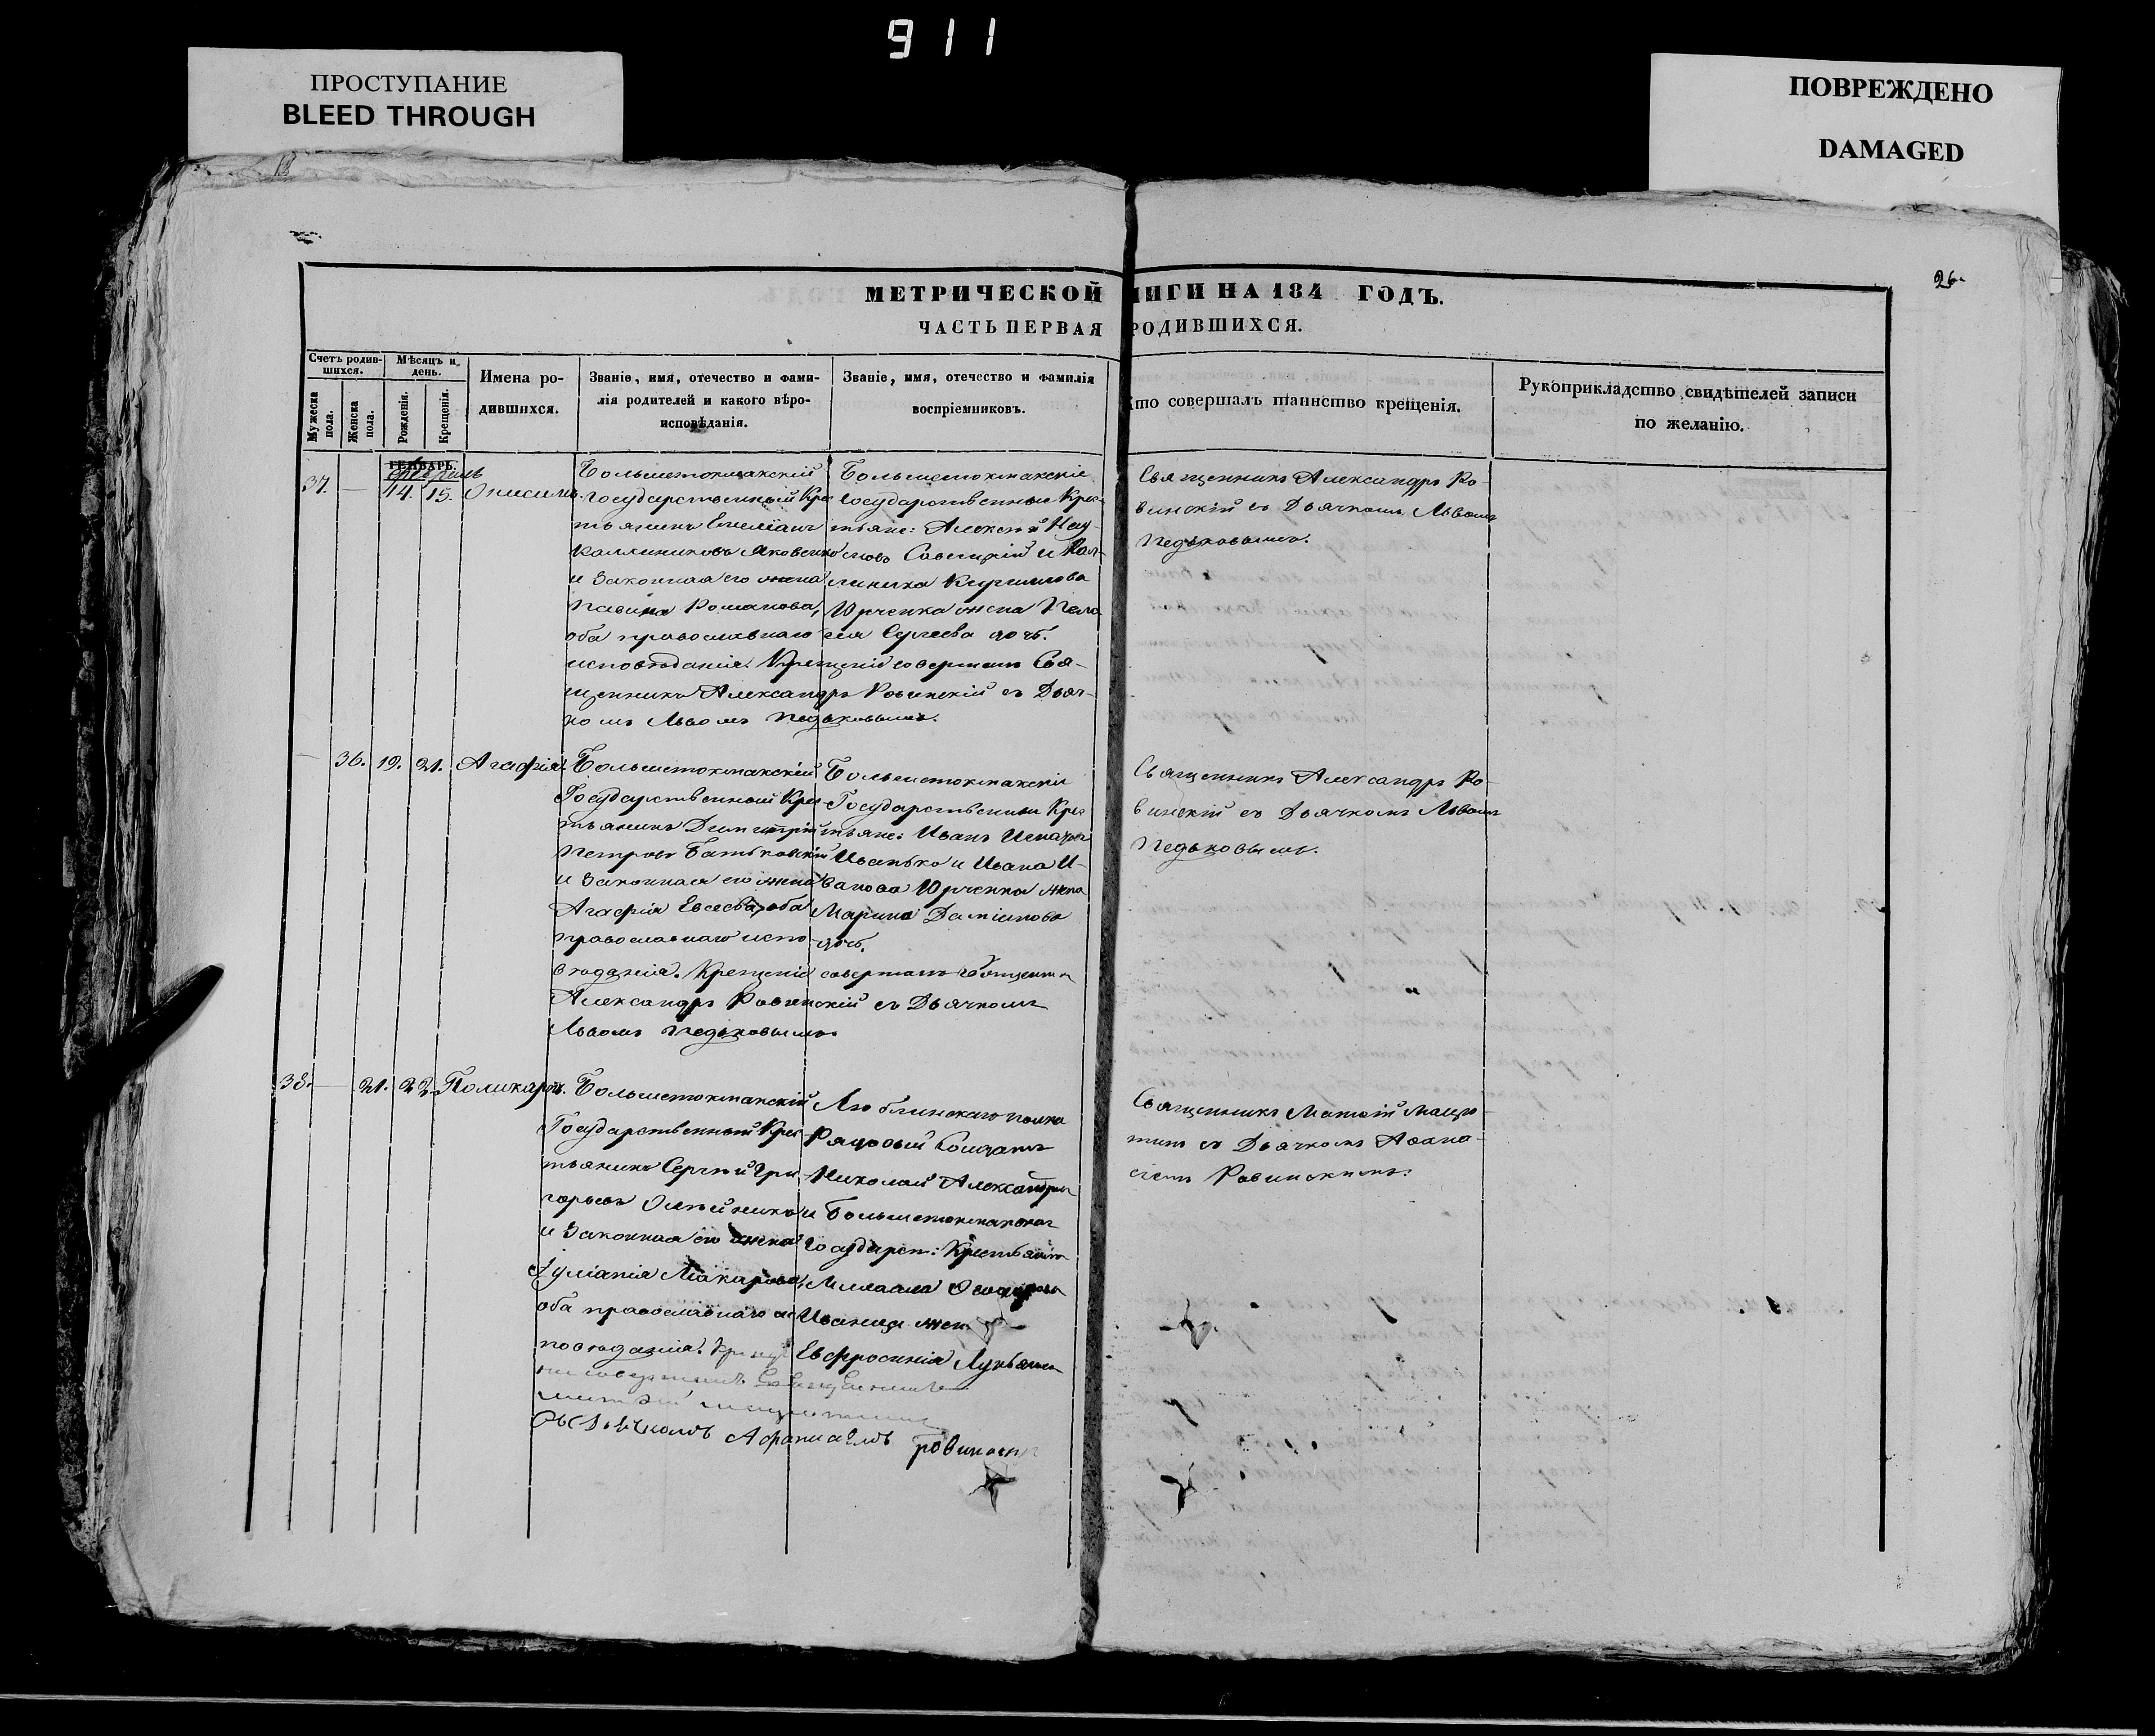 911
ПРОСТУПАНИЕ
BLEED THROUGH
ПОВРЕЖДЕНО
DAMAGED
26.
МЕТРИЧЕСКОЙ НИГИ НА 184 ГОДЪ.
ЧАСТЬ ПЕРВАЯ РОДИВШИХСЯ.
Счетъ родив-
шихся.
Мужеска пола.
Женска пола.
Мѣсяцъ и день.
Рожденія.
Крещенія.
Имена ро-
дившихся.
Званіе, имя, отечество и фами-
лія родителей и какого вѣро-
исповѣданія.
Званіе, имя, отечество и фамилія
воспріемниковъ.
Кто совершалъ таинство крещенія.
Рукоприкладство свидѣтелей записи
по желанію.
ГЕНВАРЬ.
37. — 14. 15. Онисимъ.
Большетокмакскій
Государственный Крес
тьянинъ Емеліанъ
Каллиниковъ Яковенко
и Законная его жена
Романова,
оба православнаго
исповѣданія. Крещеніе совершалъ Свя-
щенникъ Александръ Ровинскій съ Дьяч-
комъ Львомъ Педьковымъ.
Большетокмакскіе
Государственные Крес-
тьяне: Алексѣй Нау-
мовъ Савицкій и Кал-
линика Кириллова
Юрченка жена Пела
гія Сергѣева дочь.
Священникъ Александръ Ро-
винскій съ Дьячкомъ Львомъ
Педьковымъ.
— 36. 19. 21. Агафія.
Большетокмакскій
Государственный Крес-
тьянинъ Димитрій
Петровъ Батьковскій
и Законная его жена
Агафія Евсеева, оба
православнаго испо-
вѣданія. Крещеніе совершалъ Священникъ
Александръ Ровинскій съ Дьячкомъ
Львомъ Педьковымъ.
Большетокмакскіе
Государственные Крес
тьяне: Иванъ
Иванько и Ивана И-
ванова Юрченка жена
Марина Даміанова
дочь.
Священникъ Александръ Ро-
винскій съ Дьячкомъ Львомъ
Педьковымъ.
38. — 21. 22. Поликарпъ.
Большетокмакскій
Государственный Крес-
тьянинъ Сергѣй Гри-
горьевъ Олѣйникъ
и Законная его жена
Іуліанія Макарова,
оба православнаго ис
повѣданія.
Люблинскаго полка
Рядовый Солдатъ
Николай
и Большетокмакскаго
Государст: Крестьянина
Иваница
Евфросинія
Священникъ Матѳій
съ Дьячкомъ Аѳана-
сіемъ Ровинскимъ.